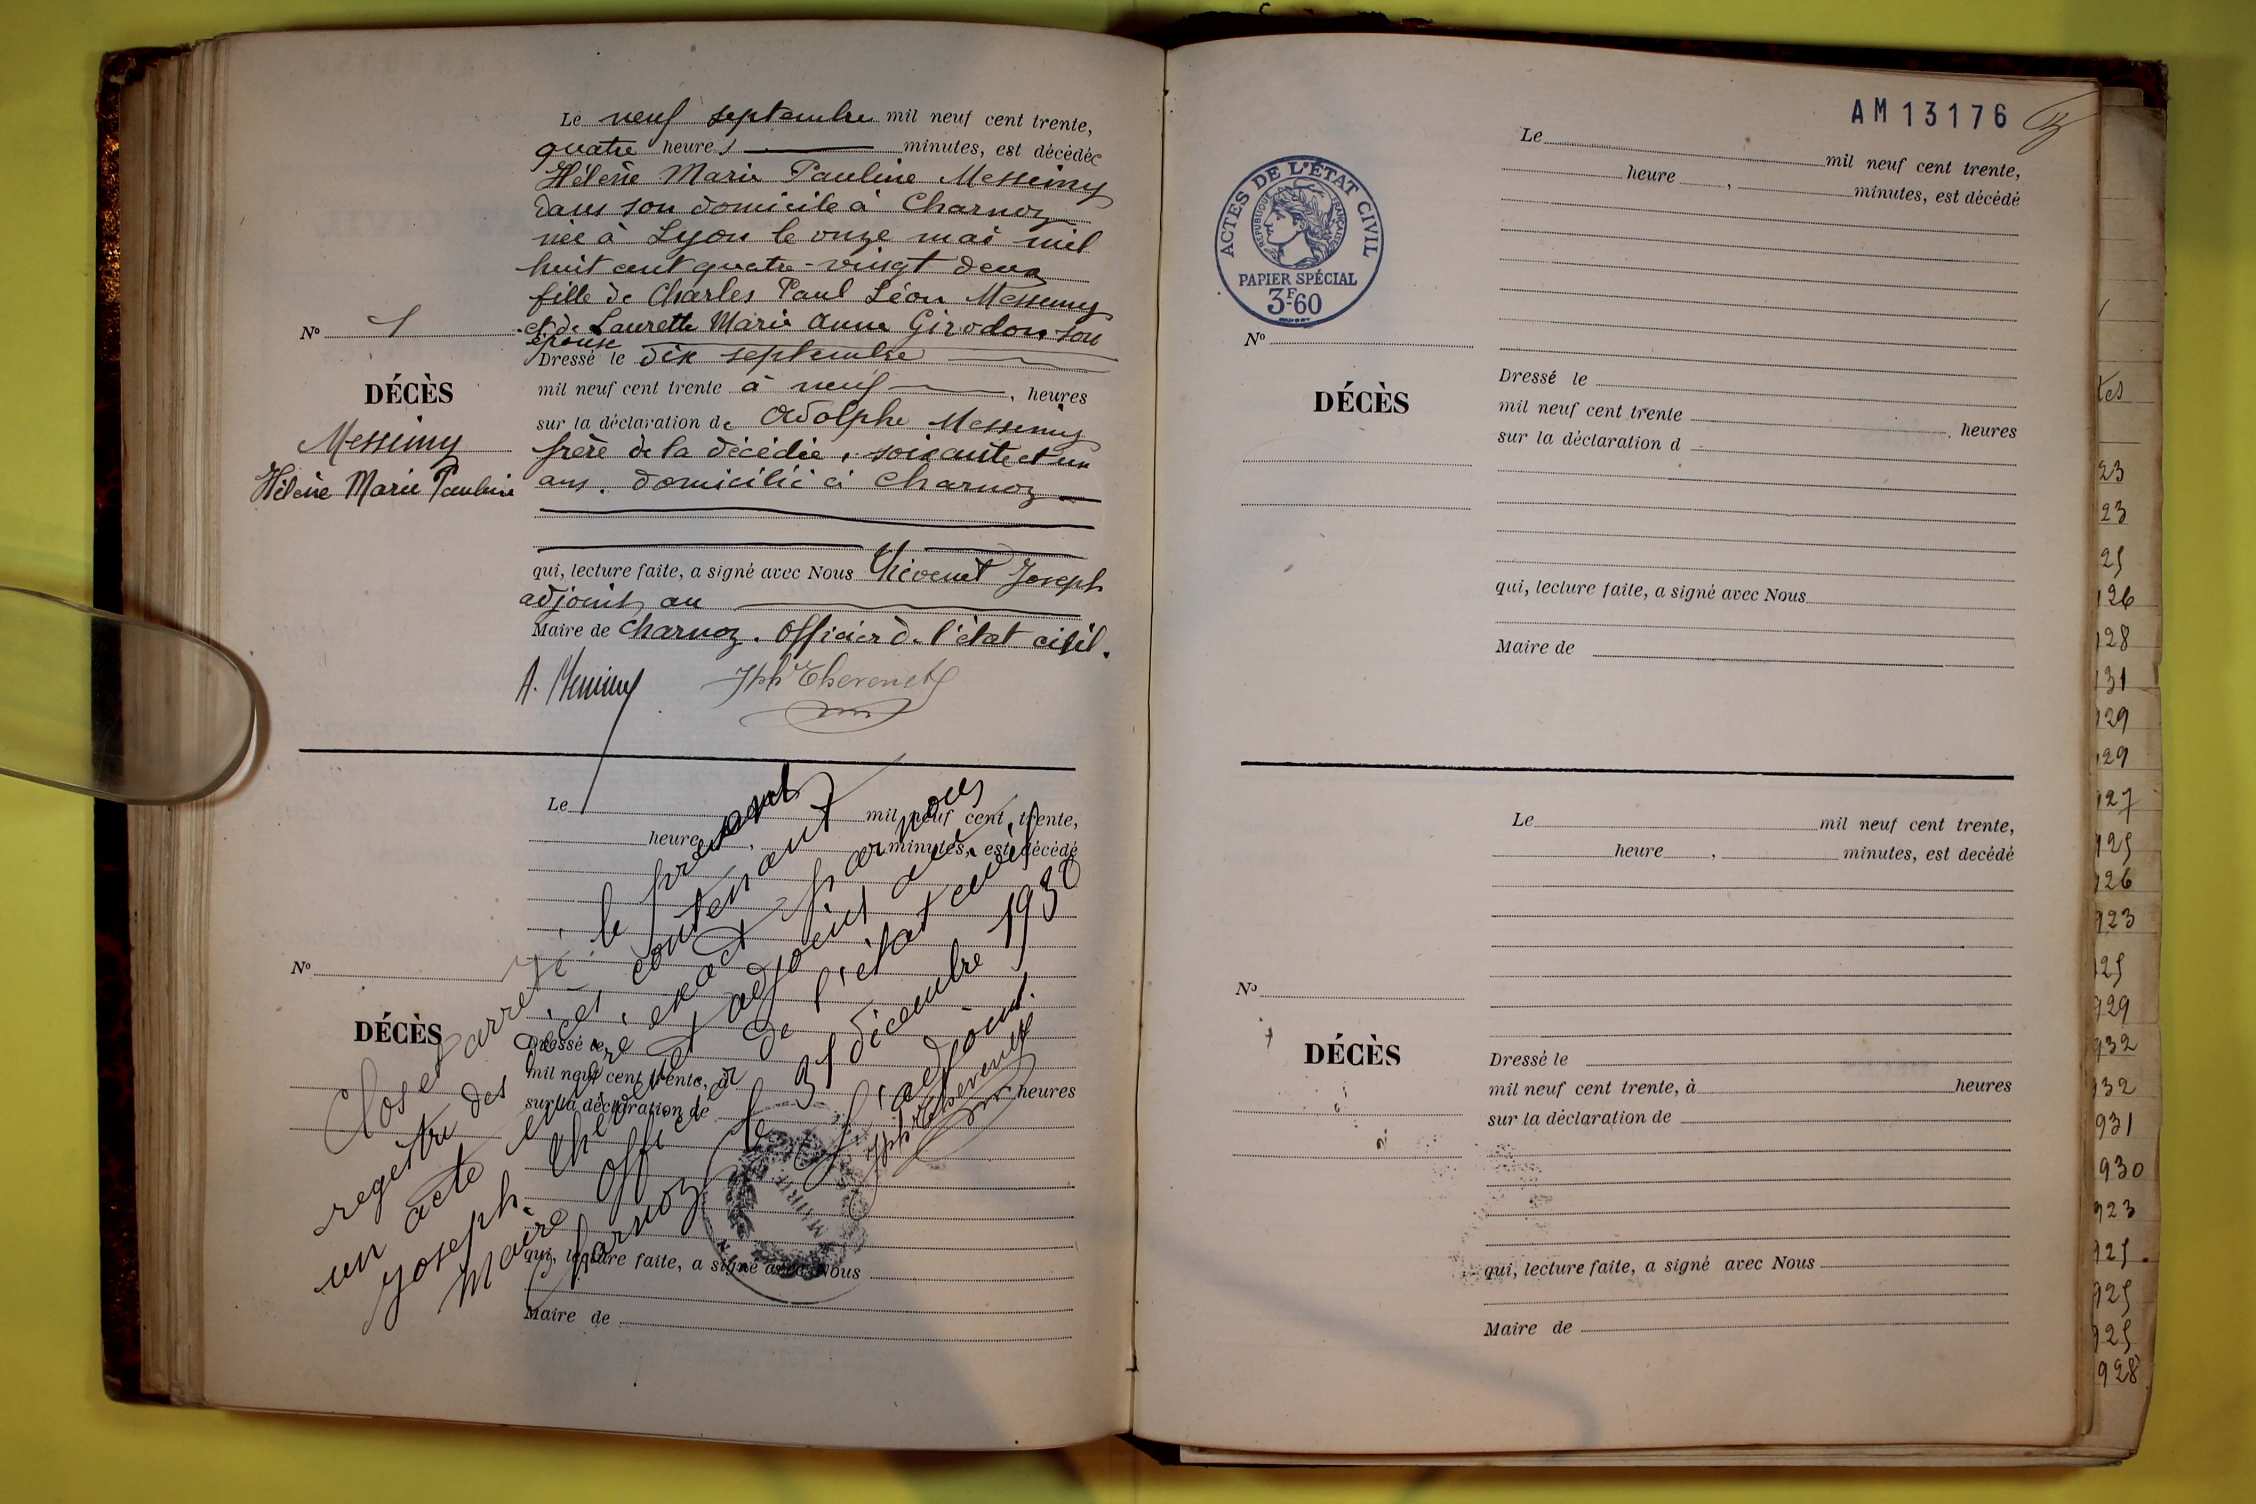 Le neuf septembre mil neuf cent trente,
quatre heures minutes, est décédée
Hélène Marie Pauline Messimy
dans son domicile à Charnoz
née à Lyon le onze mai mil
huit cent quatre-vingt deux
fille de Charles Paul Léon Messimy
et de Laurette Marie Anne Girodon son
épouse
Dressé le dix septembre
mil neuf cent trente à neuf, heures
sur la déclaration de Adolphe Messimy
frère de la décédée, soixante et un
ans. domicilié à Charnoz
qui, lecture faite, a signé avec Nous Thévenet Joseph
adjoint au
Maire de Charnoz. Officier de l'état civil.
A. Messimy Jph Thevenet
No 1
DÉCÈS
Messimy
Hélène Marie Pauline
Le mil neuf cent trente,
heure , minutes, est décédé
No
DÉCÈS
Dressé le
mil neuf cent trente, à heures
sur la déclaration de
qui, lecture faite, a signé avec Nous
Maire de
Clos et arrêté le présent
registre des décès contenant
un acte enuméré exact par nous
Joseph Thévenet adjoint au
Maire Officier de l'état civil
Charnoz le 31 décembre 1930
L'adjoint.
Jph Thevenet
MAIRIE
AM 13176
ACTES DE L'ÉTAT CIVIL
RÉPUBLIQUE FRANÇAISE
PAPIER SPÉCIAL
3F-60
Le mil neuf cent trente,
heure , minutes, est décédé
No
DÉCÈS
Dressé le
mil neuf cent trente , heures
sur la déclaration d
qui, lecture faite, a signé avec Nous
Maire de
Le mil neuf cent trente,
heure , minutes, est decédé
No
DÉCÈS
Dressé le
mil neuf cent trente, à heures
sur la déclaration de
qui, lecture faite, a signé avec Nous
Maire de
tes
23
23
25
26
28
31
29
29
27
25
26
923
25
929
932
932
931
930
923
925
925
925
928